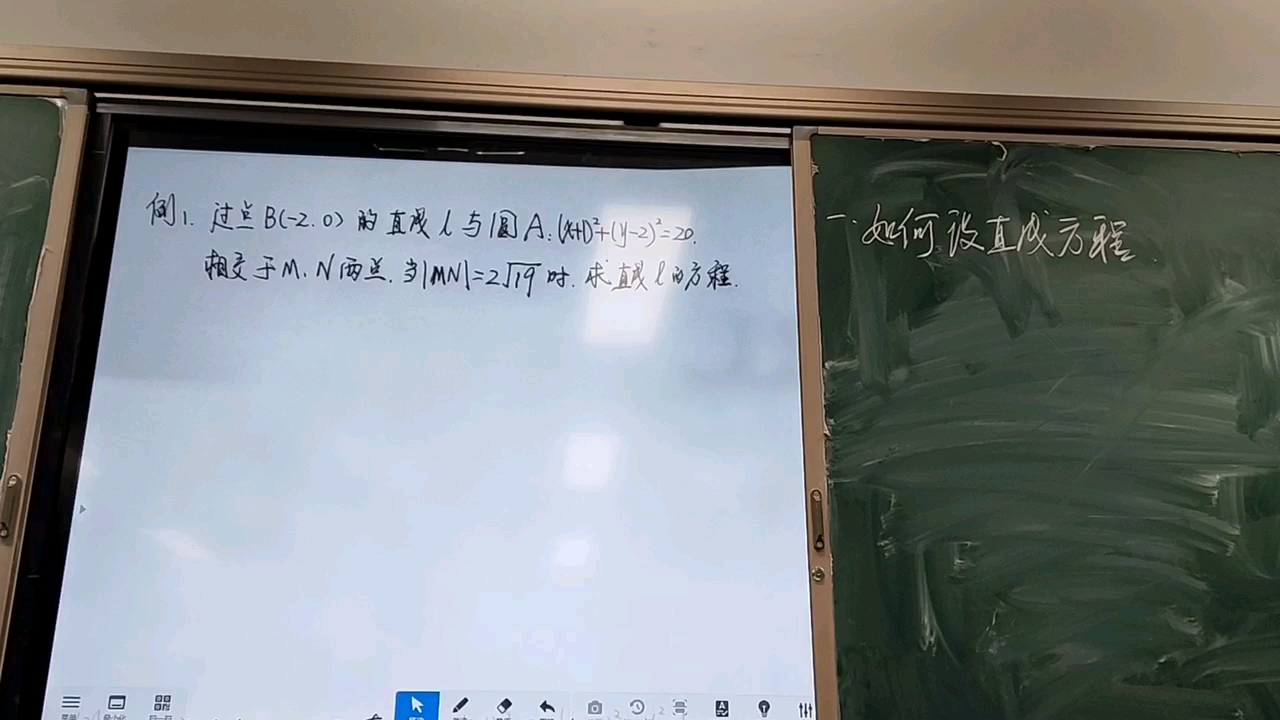 例1. 过点B(-2.0)的直线l与圆A:(x+1)²+(y-2)²=20.
相交于M、N两点.当|MN|=2√19时.求直线l的方程.
一.如何设直线方程.